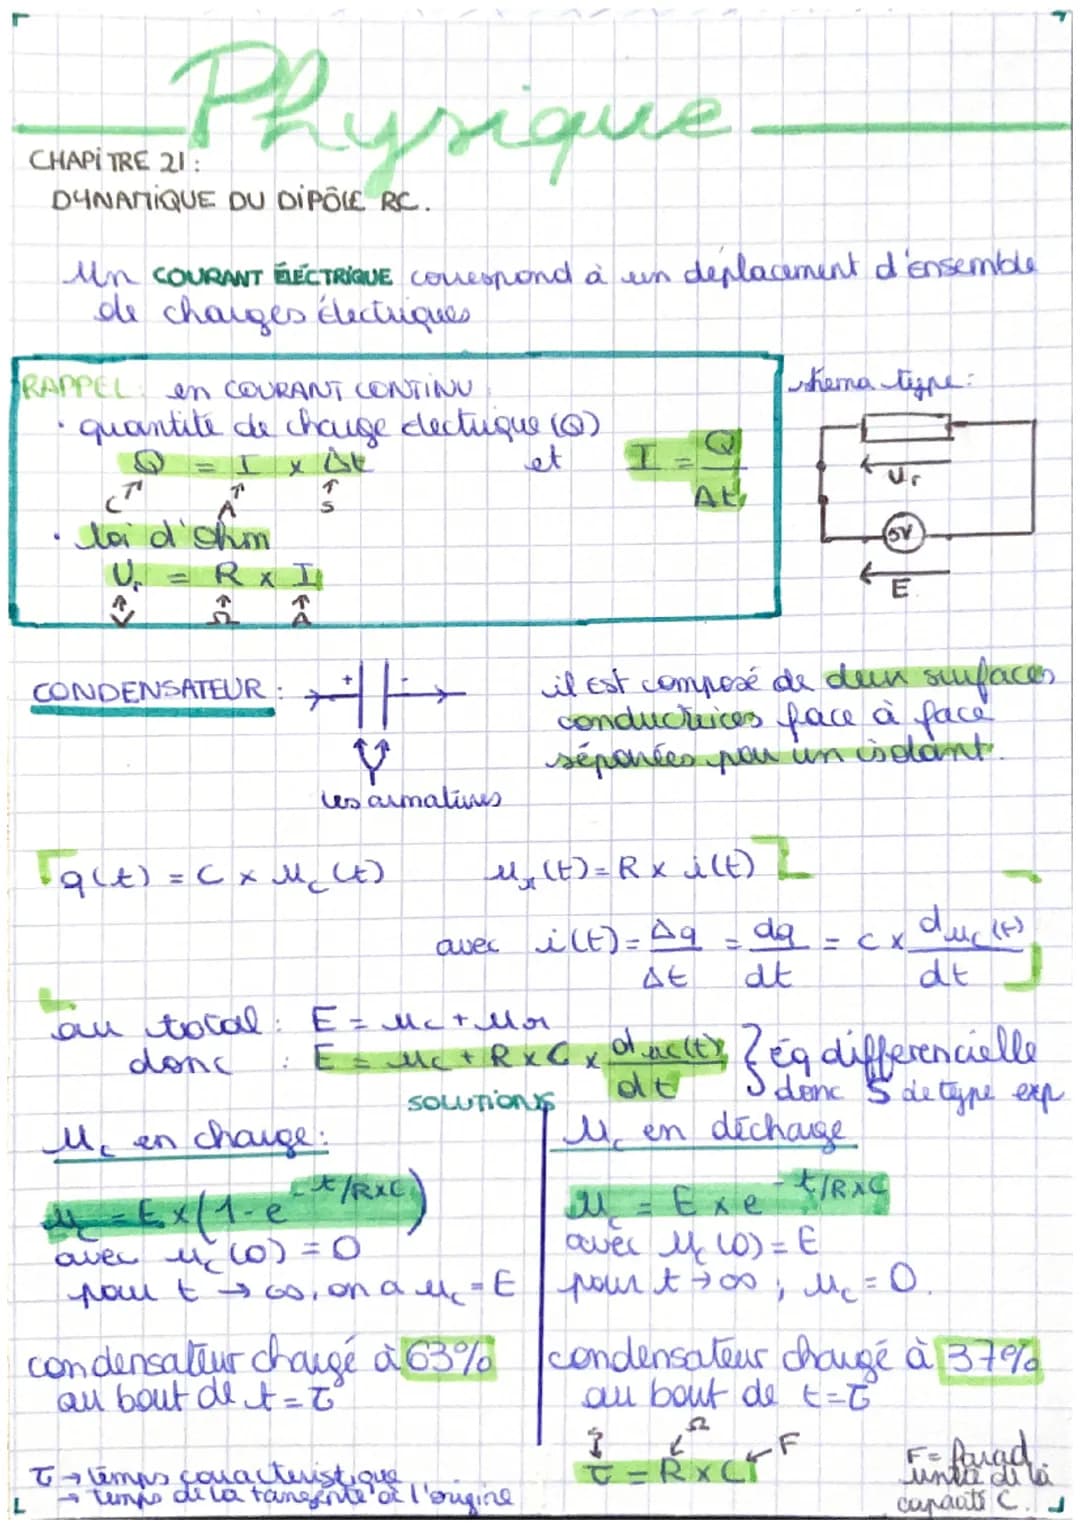 Physique
CHAPITRE 21 :
DYNAMIQUE DU DIPÔLE RC.
Un COURANT ÉLECTRIQUE correspond à un déplacement d'ensemble
de charges électriques
RAPPEL : en COURANT CONTINU
· quantité de charge electrique (Q)
Q = I x Δt et I = Q/Δt
C A s
· loi d'Ohm
Ur = R x I
V Ω A
shema type :
Ur
5V
E
CONDENSATEUR :
+ -
les armatures
il est composé de deux surfaces
conductrices face à face
séparées par un isolant.
q(t) = C x Uc(t) ur(t) = R x i(t)
avec i(t) = Δq/Δt = dq/dt = C x duc(t)/dt
au total : E = uc + ur
donc : E = uc + R x C x duc(t)/dt } éq differencielle
donc S de type exp
SOLUTIONS
Uc en charge :
uc = E x (1 - e^-t/RxC)
avec uc(0) = 0
pour t → ∞, on a uc = E
condensateur chargé à 63%
au bout de t = τ
Uc en décharge
uc = E x e^-t/RxC
avec uc(0) = E
pour t → ∞ ; uc = 0.
condensateur chargé à 37%
au bout de t = τ
Ω
F
τ = R x C
τ → temps caracteristique
→ temps de la tangente à l'origine
F = Farad
unité de la
capacité C.